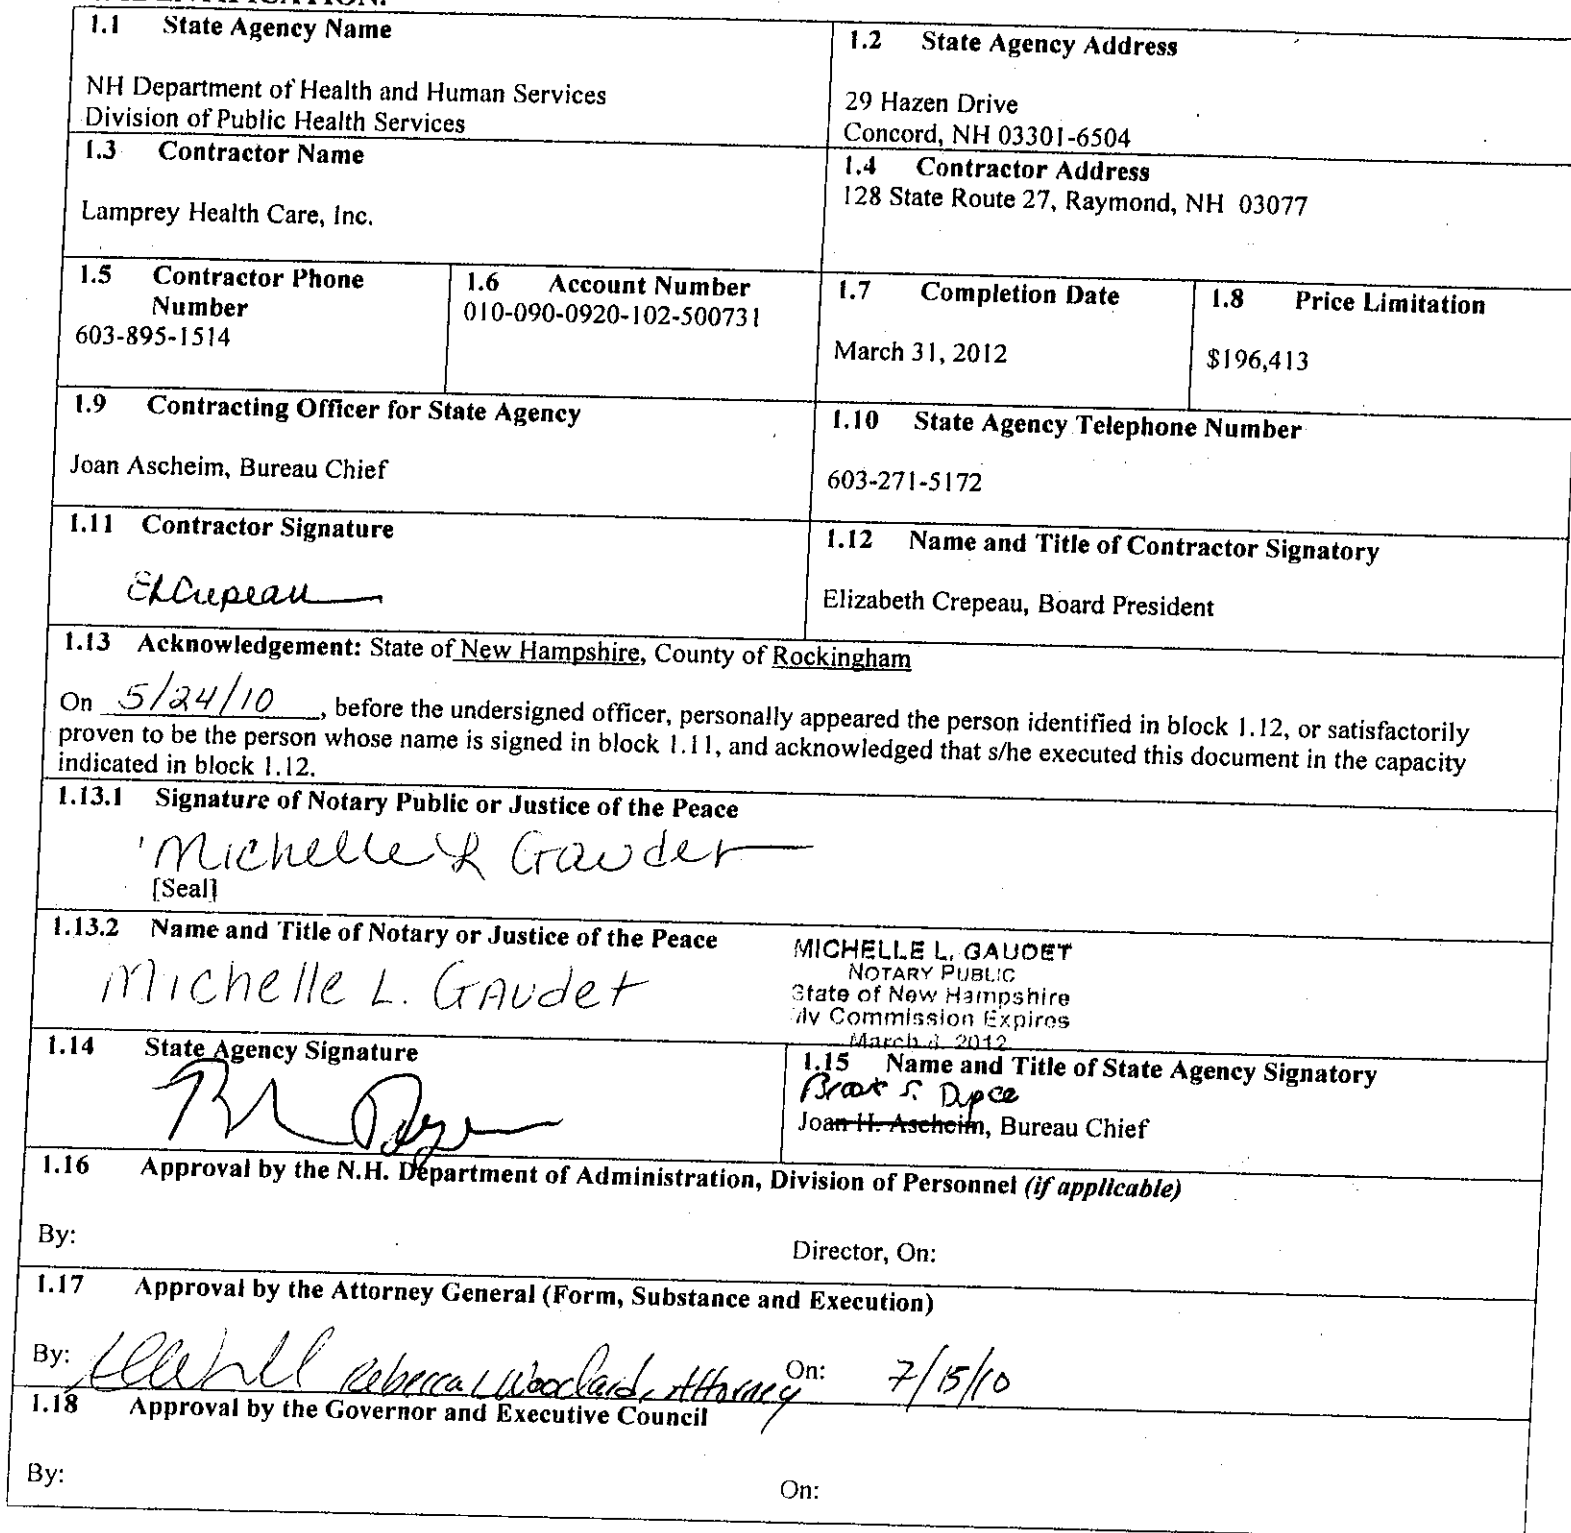 1.1 State Agency Name
NH Department of Health and Human Services
Division of Public Health Services
1.2 State Agency Address
29 Hazen Drive
Concord, NH 03301-6504
1.3 Contractor Name
Lamprey Health Care, Inc.
1.4 Contractor Address
128 State Route 27, Raymond, NH 03077
1.5 Contractor Phone
Number
603-895-1514
1.6 Account Number
010-090-0920-102-500731
1.7 Completion Date
March 31, 2012
1.8 Price Limitation
$196,413
1.9 Contracting Officer for State Agency
Joan Ascheim, Bureau Chief
1.10 State Agency Telephone Number
603-271-5172
1.11 Contractor Signature
ELCrepeau
1.12 Name and Title of Contractor Signatory
Elizabeth Crepeau, Board President
1.13 Acknowledgement: State of New Hampshire, County of Rockingham
On 5/24/10, before the undersigned officer, personally appeared the person identified in block 1.12, or satisfactorily
proven to be the person whose name is signed in block 1.11, and acknowledged that s/he executed this document in the capacity
indicated in block 1.12.
1.13.1 Signature of Notary Public or Justice of the Peace
Michelle L Gaudet
[Seal]
1.13.2 Name and Title of Notary or Justice of the Peace
Michelle L. GAudet
MICHELLE L. GAUDET
NOTARY PUBLIC
State of New Hampshire
My Commission Expires
March 2012
1.14 State Agency Signature
1.15 Name and Title of State Agency Signatory
Brook S. Dupee
Joan H. Ascheim, Bureau Chief
1.16 Approval by the N.H. Department of Administration, Division of Personnel (if applicable)
By:
Director, On:
1.17 Approval by the Attorney General (Form, Substance and Execution)
By: Rebecca L Woodard, Attorney On: 7/15/10
1.18 Approval by the Governor and Executive Council
By:
On: